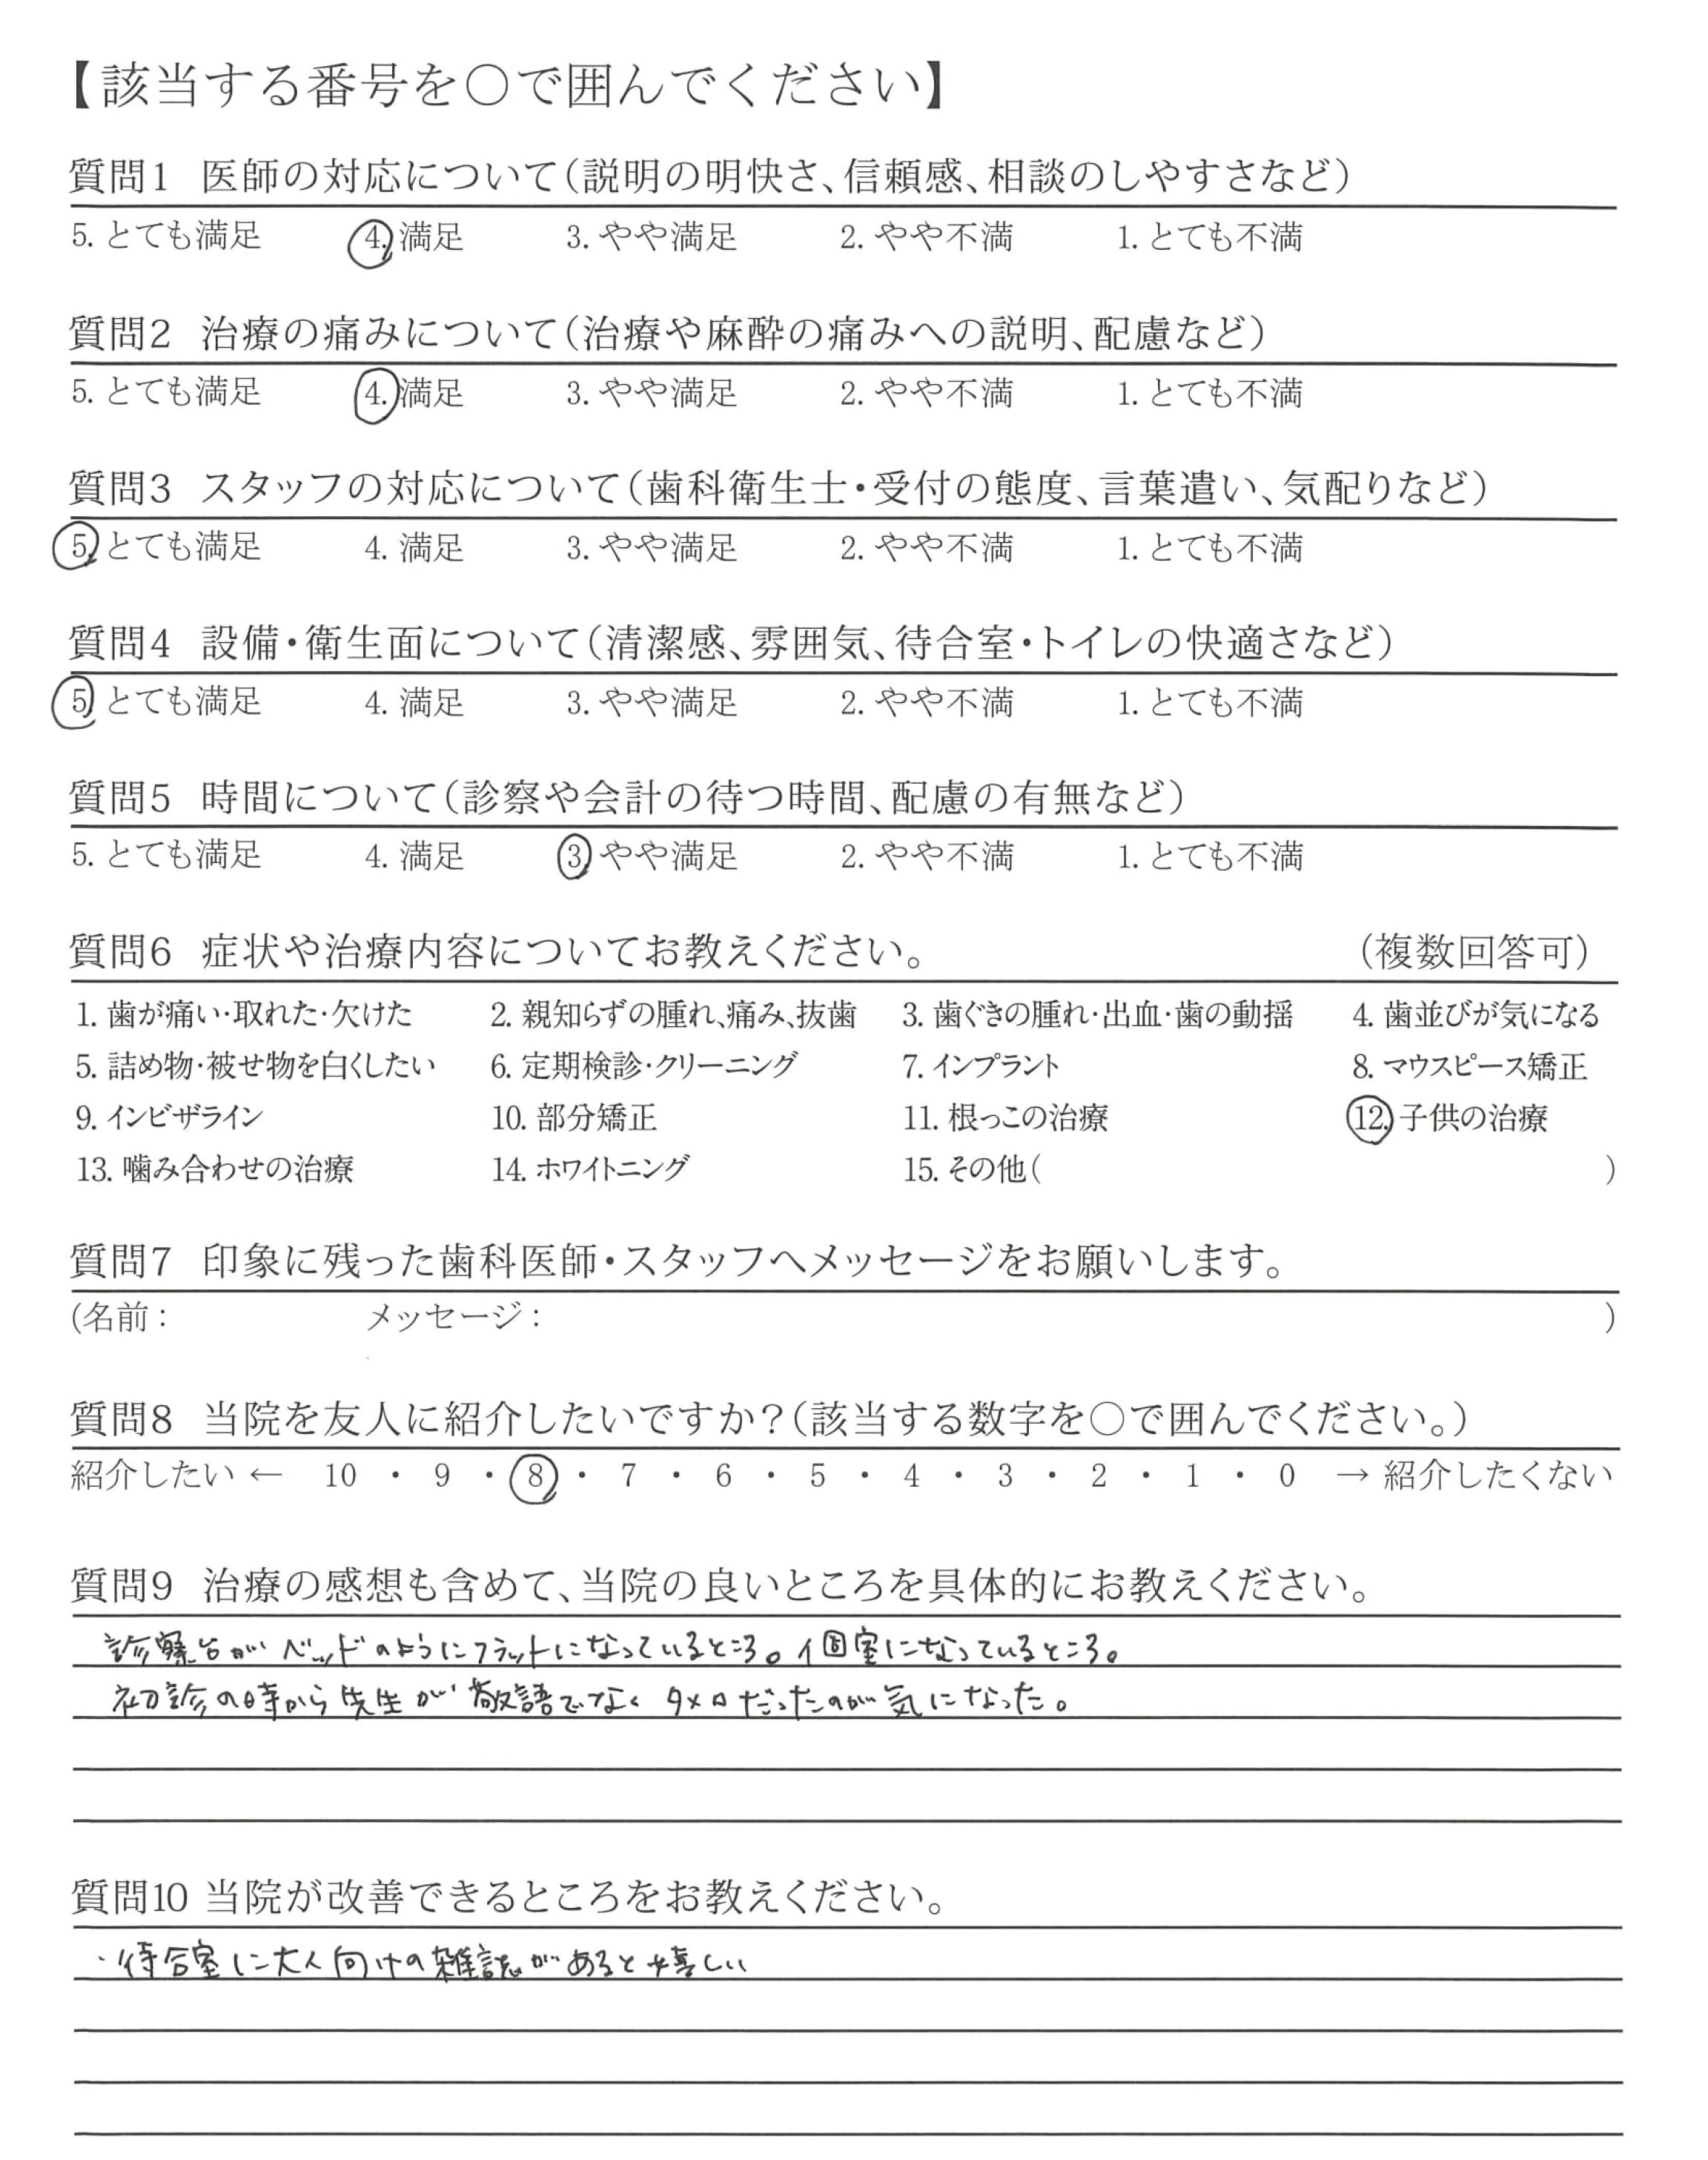 【該当する番号を○で囲んでください】
質問1 医師の対応について（説明の明快さ、信頼感、相談のしやすさなど）
5. とても満足 4. 満足 3. やや満足 2. やや不満 1. とても不満
質問2 治療の痛みについて（治療や麻酔の痛みへの説明、配慮など）
5. とても満足 4. 満足 3. やや満足 2. やや不満 1. とても不満
質問3 スタッフの対応について（歯科衛生士・受付の態度、言葉遣い、気配りなど）
5. とても満足 4. 満足 3. やや満足 2. やや不満 1. とても不満
質問4 設備・衛生面について（清潔感、雰囲気、待合室・トイレの快適さなど）
5. とても満足 4. 満足 3. やや満足 2. やや不満 1. とても不満
質問5 時間について（診察や会計の待つ時間、配慮の有無など）
5. とても満足 4. 満足 3. やや満足 2. やや不満 1. とても不満
質問6 症状や治療内容についてお教えください。 （複数回答可）
1. 歯が痛い・取れた・欠けた 2. 親知らずの腫れ、痛み、抜歯 3. 歯ぐきの腫れ・出血・歯の動揺 4. 歯並びが気になる
5. 詰め物・被せ物を白くしたい 6. 定期検診・クリーニング 7. インプラント 8. マウスピース矯正
9. インビザライン 10. 部分矯正 11. 根っこの治療 12. 子供の治療
13. 噛み合わせの治療 14. ホワイトニング 15. その他（ ）
質問7 印象に残った歯科医師・スタッフへメッセージをお願いします。
(名前： メッセージ： )
質問8 当院を友人に紹介したいですか？（該当する数字を○で囲んでください。）
紹介したい ← 10 ・ 9 ・ 8 ・ 7 ・ 6 ・ 5 ・ 4 ・ 3 ・ 2 ・ 1 ・ 0 → 紹介したくない
質問9 治療の感想も含めて、当院の良いところを具体的にお教えください。
診察台がベッドのようにフラットになっているところ。個室になっているところ。
初診の時から先生が敬語でなくタメ口だったのが気になった。
質問10 当院が改善できるところをお教えください。
・待合室に大人向けの雑誌があると嬉しい